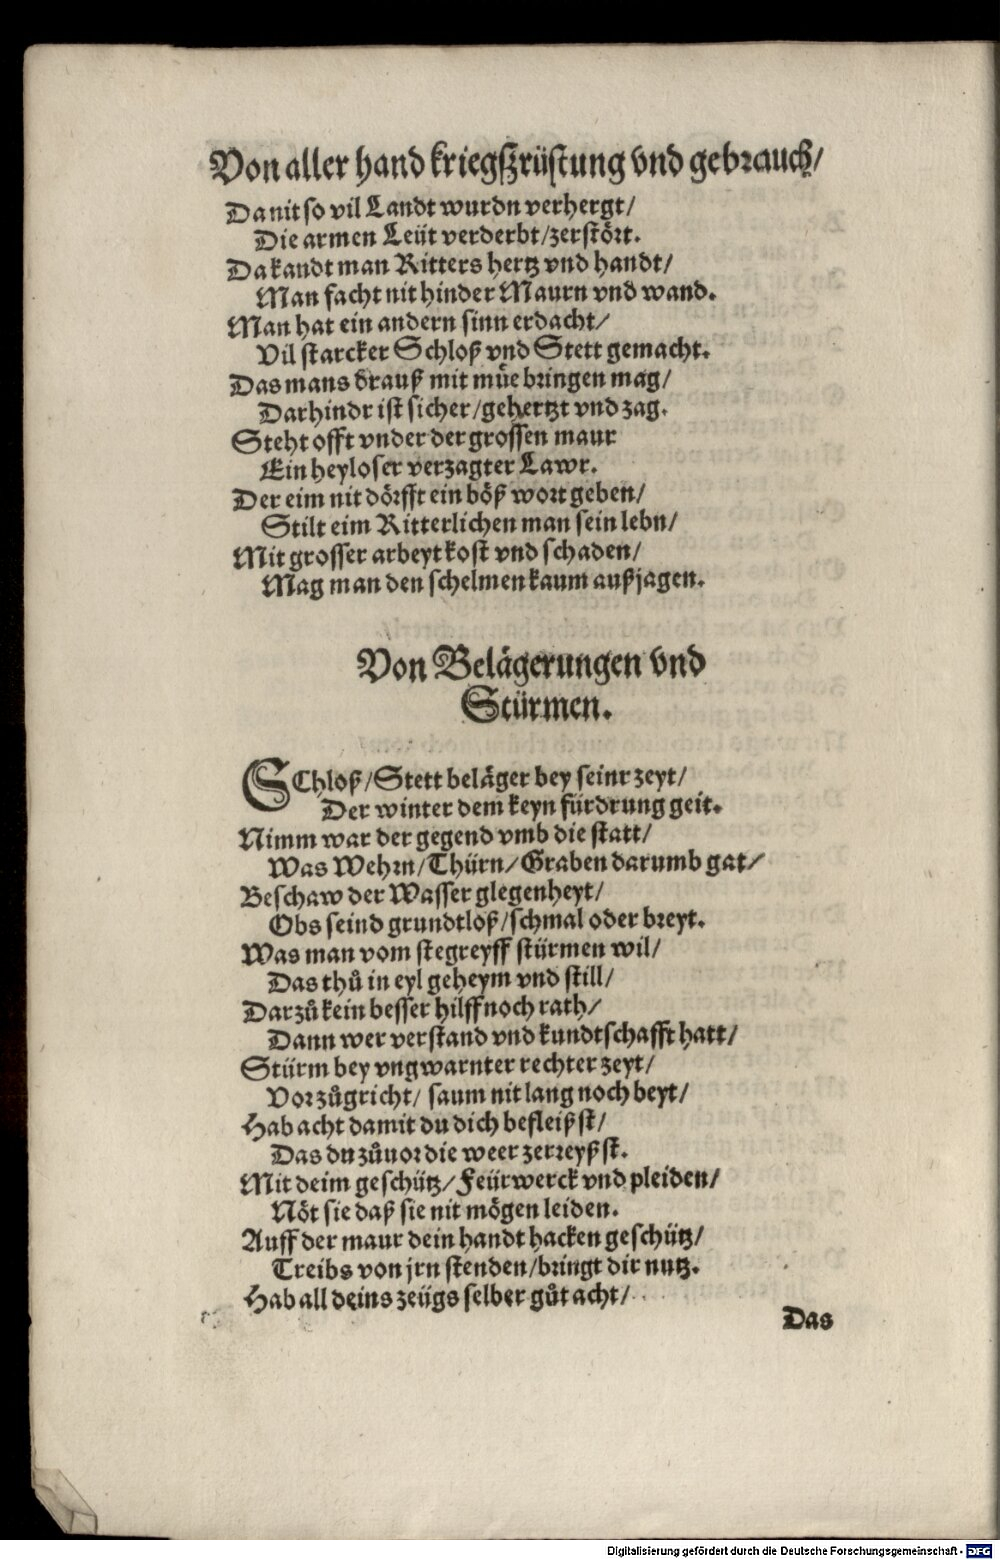 Von aller hand kriegßrüstung vnd gebrauch/
Da nit so vil Landt wurdn verhergt/
Die armen Leüt verderbt/zerstört.
Da kandt man Ritters hertz vnd handt/
Man facht nit hinder Maurn vnd wand.
Man hat ein andern sinn erdacht/
Vil starcker Schloß vnd Stett gemacht.
Das mans drauß mit müe bringen mag/
Darhindr ist sicher/gehertzt vnd zag.
Steht offt vnder der grossen maur
Ein heyloser verzagter Lawr.
Der eim nit dörfft ein böß wort geben/
Stilt eim Ritterlichen man sein lebn/
Mit grosser arbeyt kost vnd schaden/
Mag man den schelmen kaum außjagen.
Von Belägerungen vnd
Stürmen.
SChloß/Stett beläger bey seinr zeyt/
Der winter dem keyn fürdrung geit.
Nimm war der gegend vmb die statt/
Was Wehrn/Thürn/Graben darumb gat/
Beschaw der Wasser glegenheyt/
Obs seind grundtloß/schmal oder breyt.
Was man vom stegreyff stürmen wil/
Das thů in eyl geheym vnd still/
Darzů kein besser hilff noch rath/
Dann wer verstand vnd kundtschafft hatt/
Stürm bey vngwarnter rechter zeyt/
Vor zůgricht/ saum nit lang noch beyt/
Hab acht damit du dich befleißst/
Das du zůuor die weer zerreyßst.
Mit deim geschütz/Feürwerck vnd pleiden/
Nöt sie daß sie nit mögen leiden.
Auff der maur dein handt hacken geschütz/
Treibs von jrn stenden/bringt dir nutz.
Hab all deins zeügs selber gůt acht/
Das
Digitalisierung gefördert durch die Deutsche Forschungsgemeinschaft - DFG